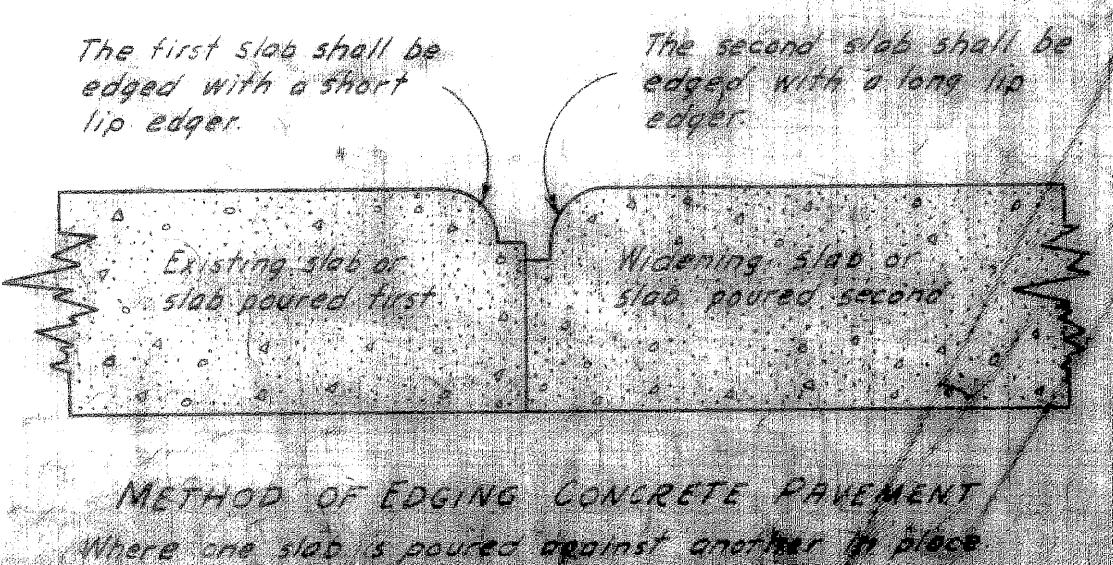 The first slab shall be
edged with a short
lip edger.
The second slab shall be
edged with a long lip
edger.
Existing slab or
slab poured first
Widening slab or
slab poured second
METHOD OF EDGING CONCRETE PAVEMENT
Where one slab is poured against another in place.